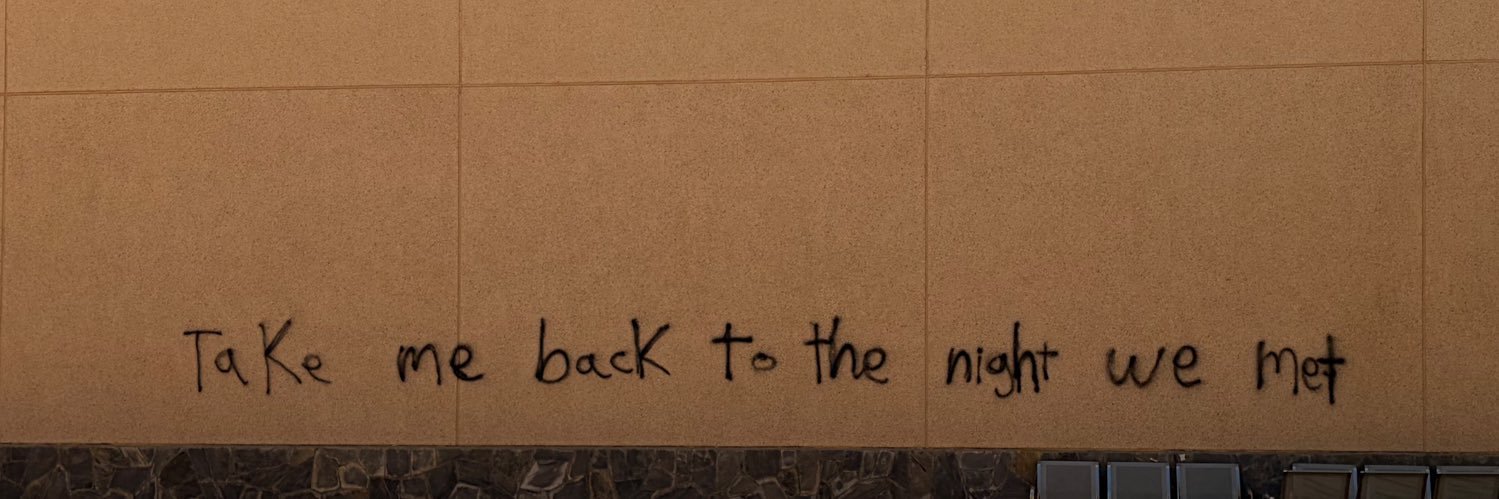 Take me back to the night we met